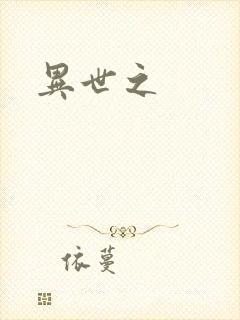 異世之
依蔓